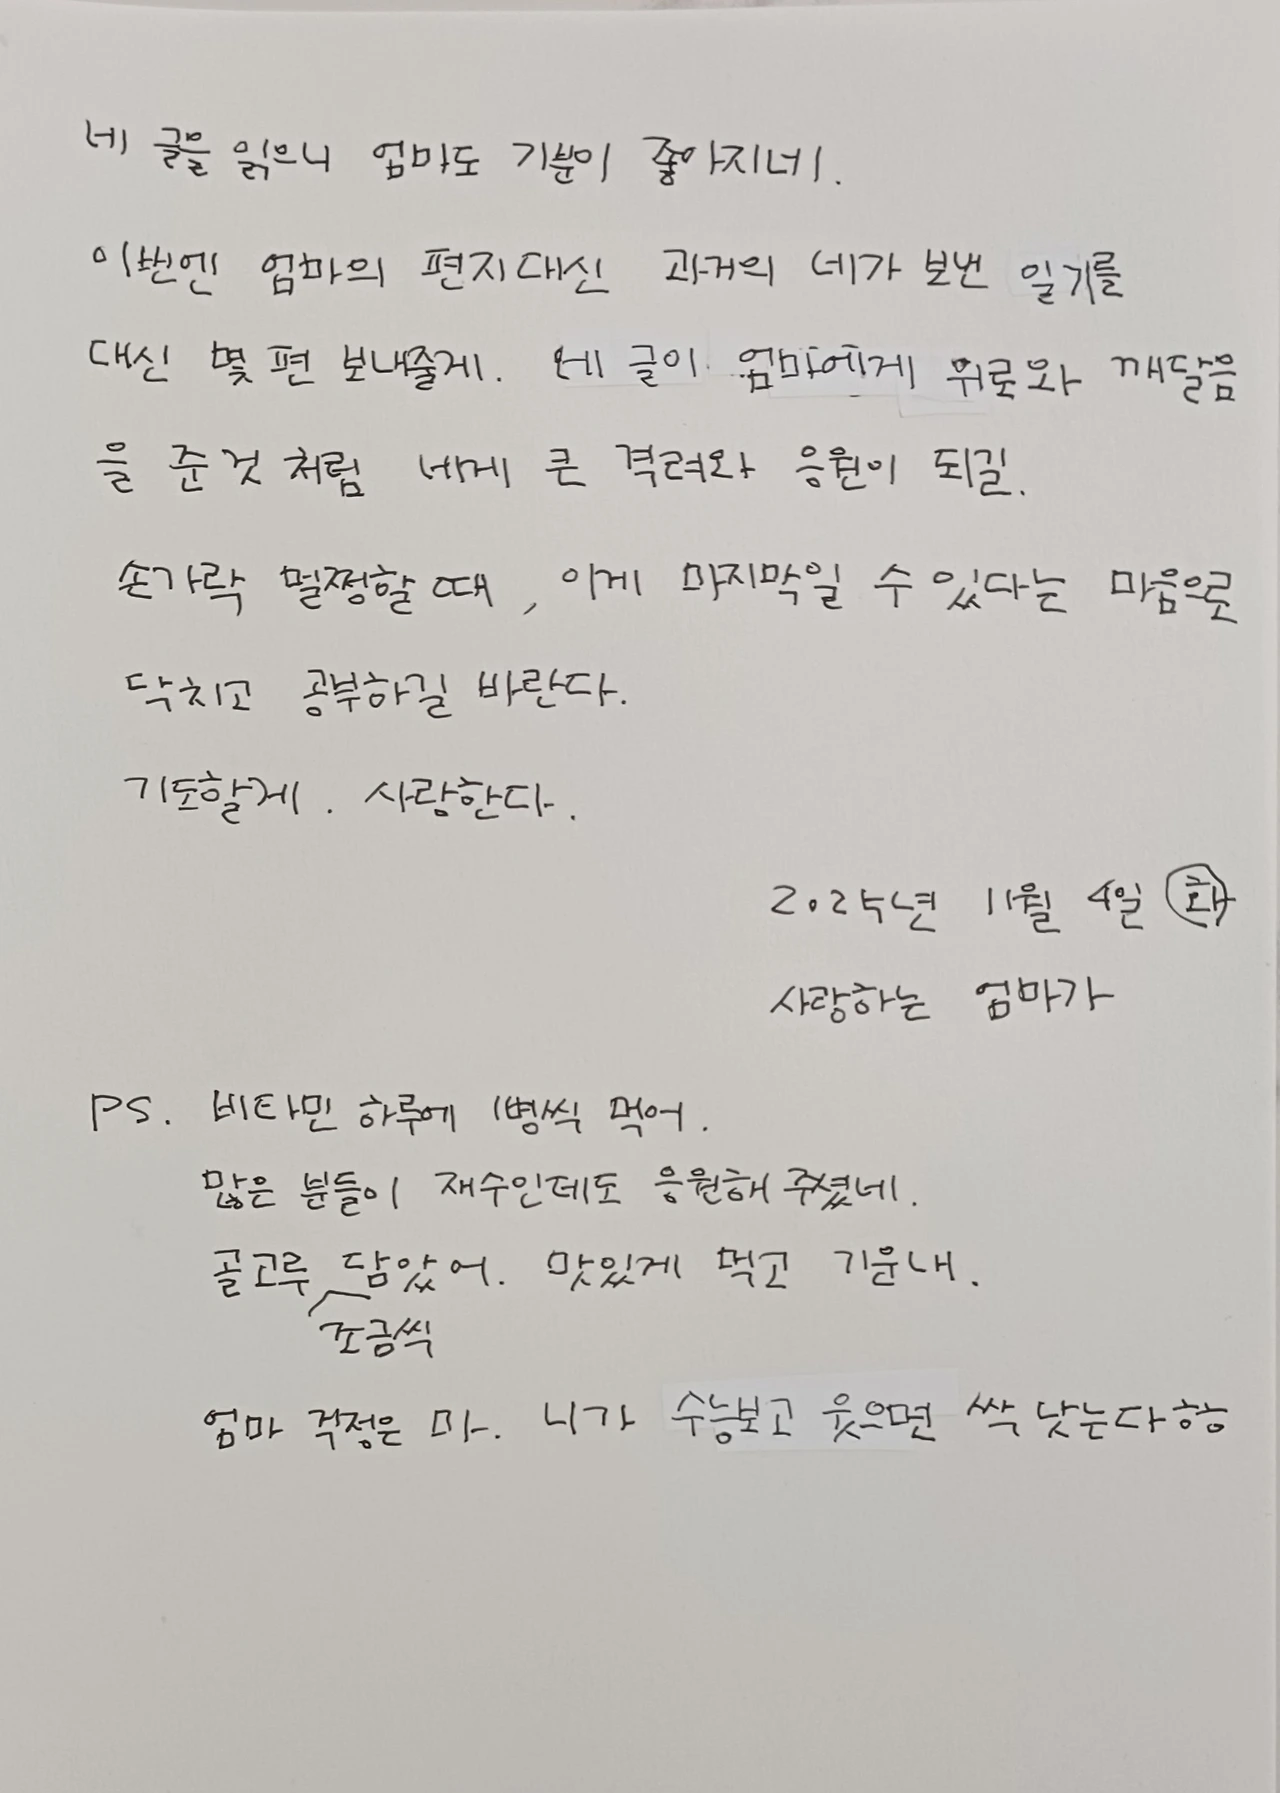 네 글을 읽으니 엄마도 기분이 좋아지네.
이번엔 엄마의 편지대신 과거의 네가 보낸 일기를
대신 몇 편 보내줄게. 네 글이 엄마에게 위로와 깨달음
을 준것 처럼 네게 큰 격려와 응원이 되길.
손가락 멀쩡할 때, 이게 마지막일 수 있다는 마음으로
닥치고 공부하길 바란다.
기도할게. 사랑한다.
2025년 11월 4일 화
사랑하는 엄마가
PS. 비타민 하루에 1병씩 먹어.
많은 분들이 재수인데도 응원해 주셨네.
골고루 담았어. 맛있게 먹고 기운내.
조금씩
엄마 걱정은 마. 니가 수능보고 웃으면 싹 낫는다항